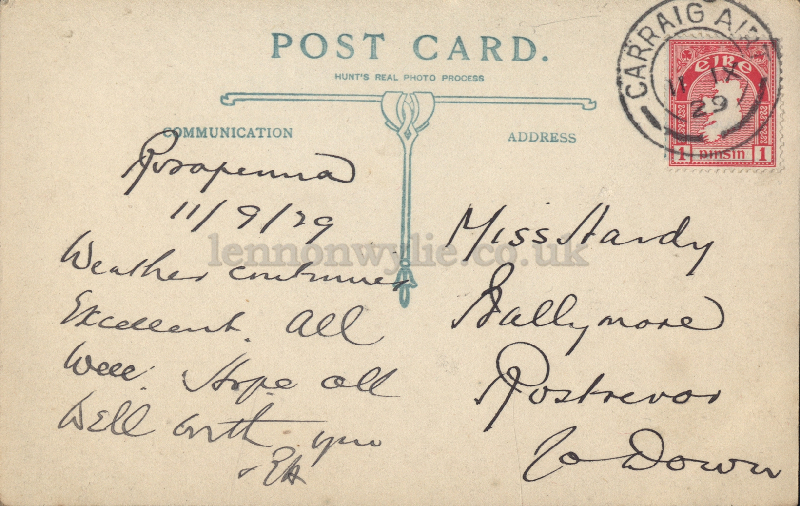 POST CARD.
HUNT'S REAL PHOTO PROCESS
COMMUNICATION
ADDRESS
CARRAIG AIRT
11
29
éire
1 pinsin 1
Rosapenna
11/9/29
Weather continues
Excellent. All
Well. Hope all
Well with you
EH
Miss Hardy
Ballymore
Rostrevor
Co Down
lennonwylie.co.uk